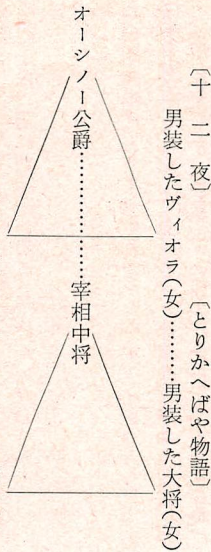 〔十二夜〕　〔とりかへばや物語〕
男装したヴィオラ(女)………男装した大将(女)
オーシノー公爵………………宰相中将